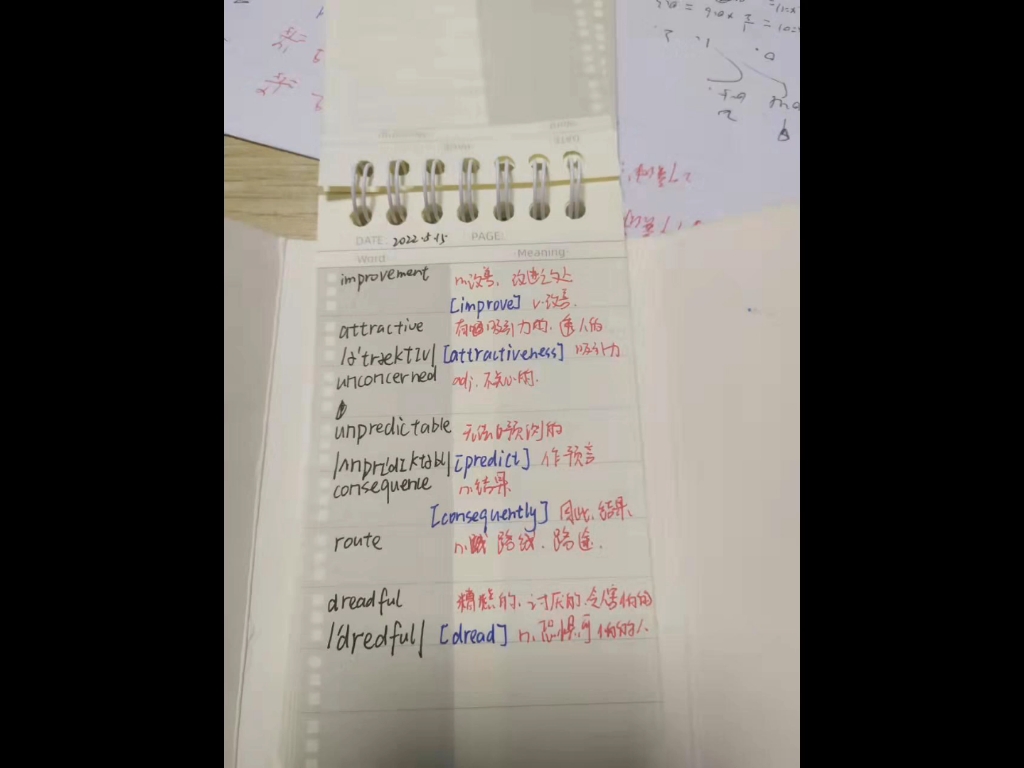 DATE: 2022.5.15 PAGE:
Word Meaning
improvement n.改善, 改进之处
[improve] v.改善.
attractive 有吸引力的, 迷人的
/ə'træktɪv/ [attractiveness] 吸引力
unconcerned adj. 不关心的.
unpredictable 无法预测的
/ʌnprɪ'dɪktəbl/ [predict] 作预言
consequence n.结果
[consequently] 因此, 结果,
route n. 路线. 路途.
dreadful 糟糕的. 讨厌的. 令人害怕的
/'dredful/ [dread] n. 恐惧.